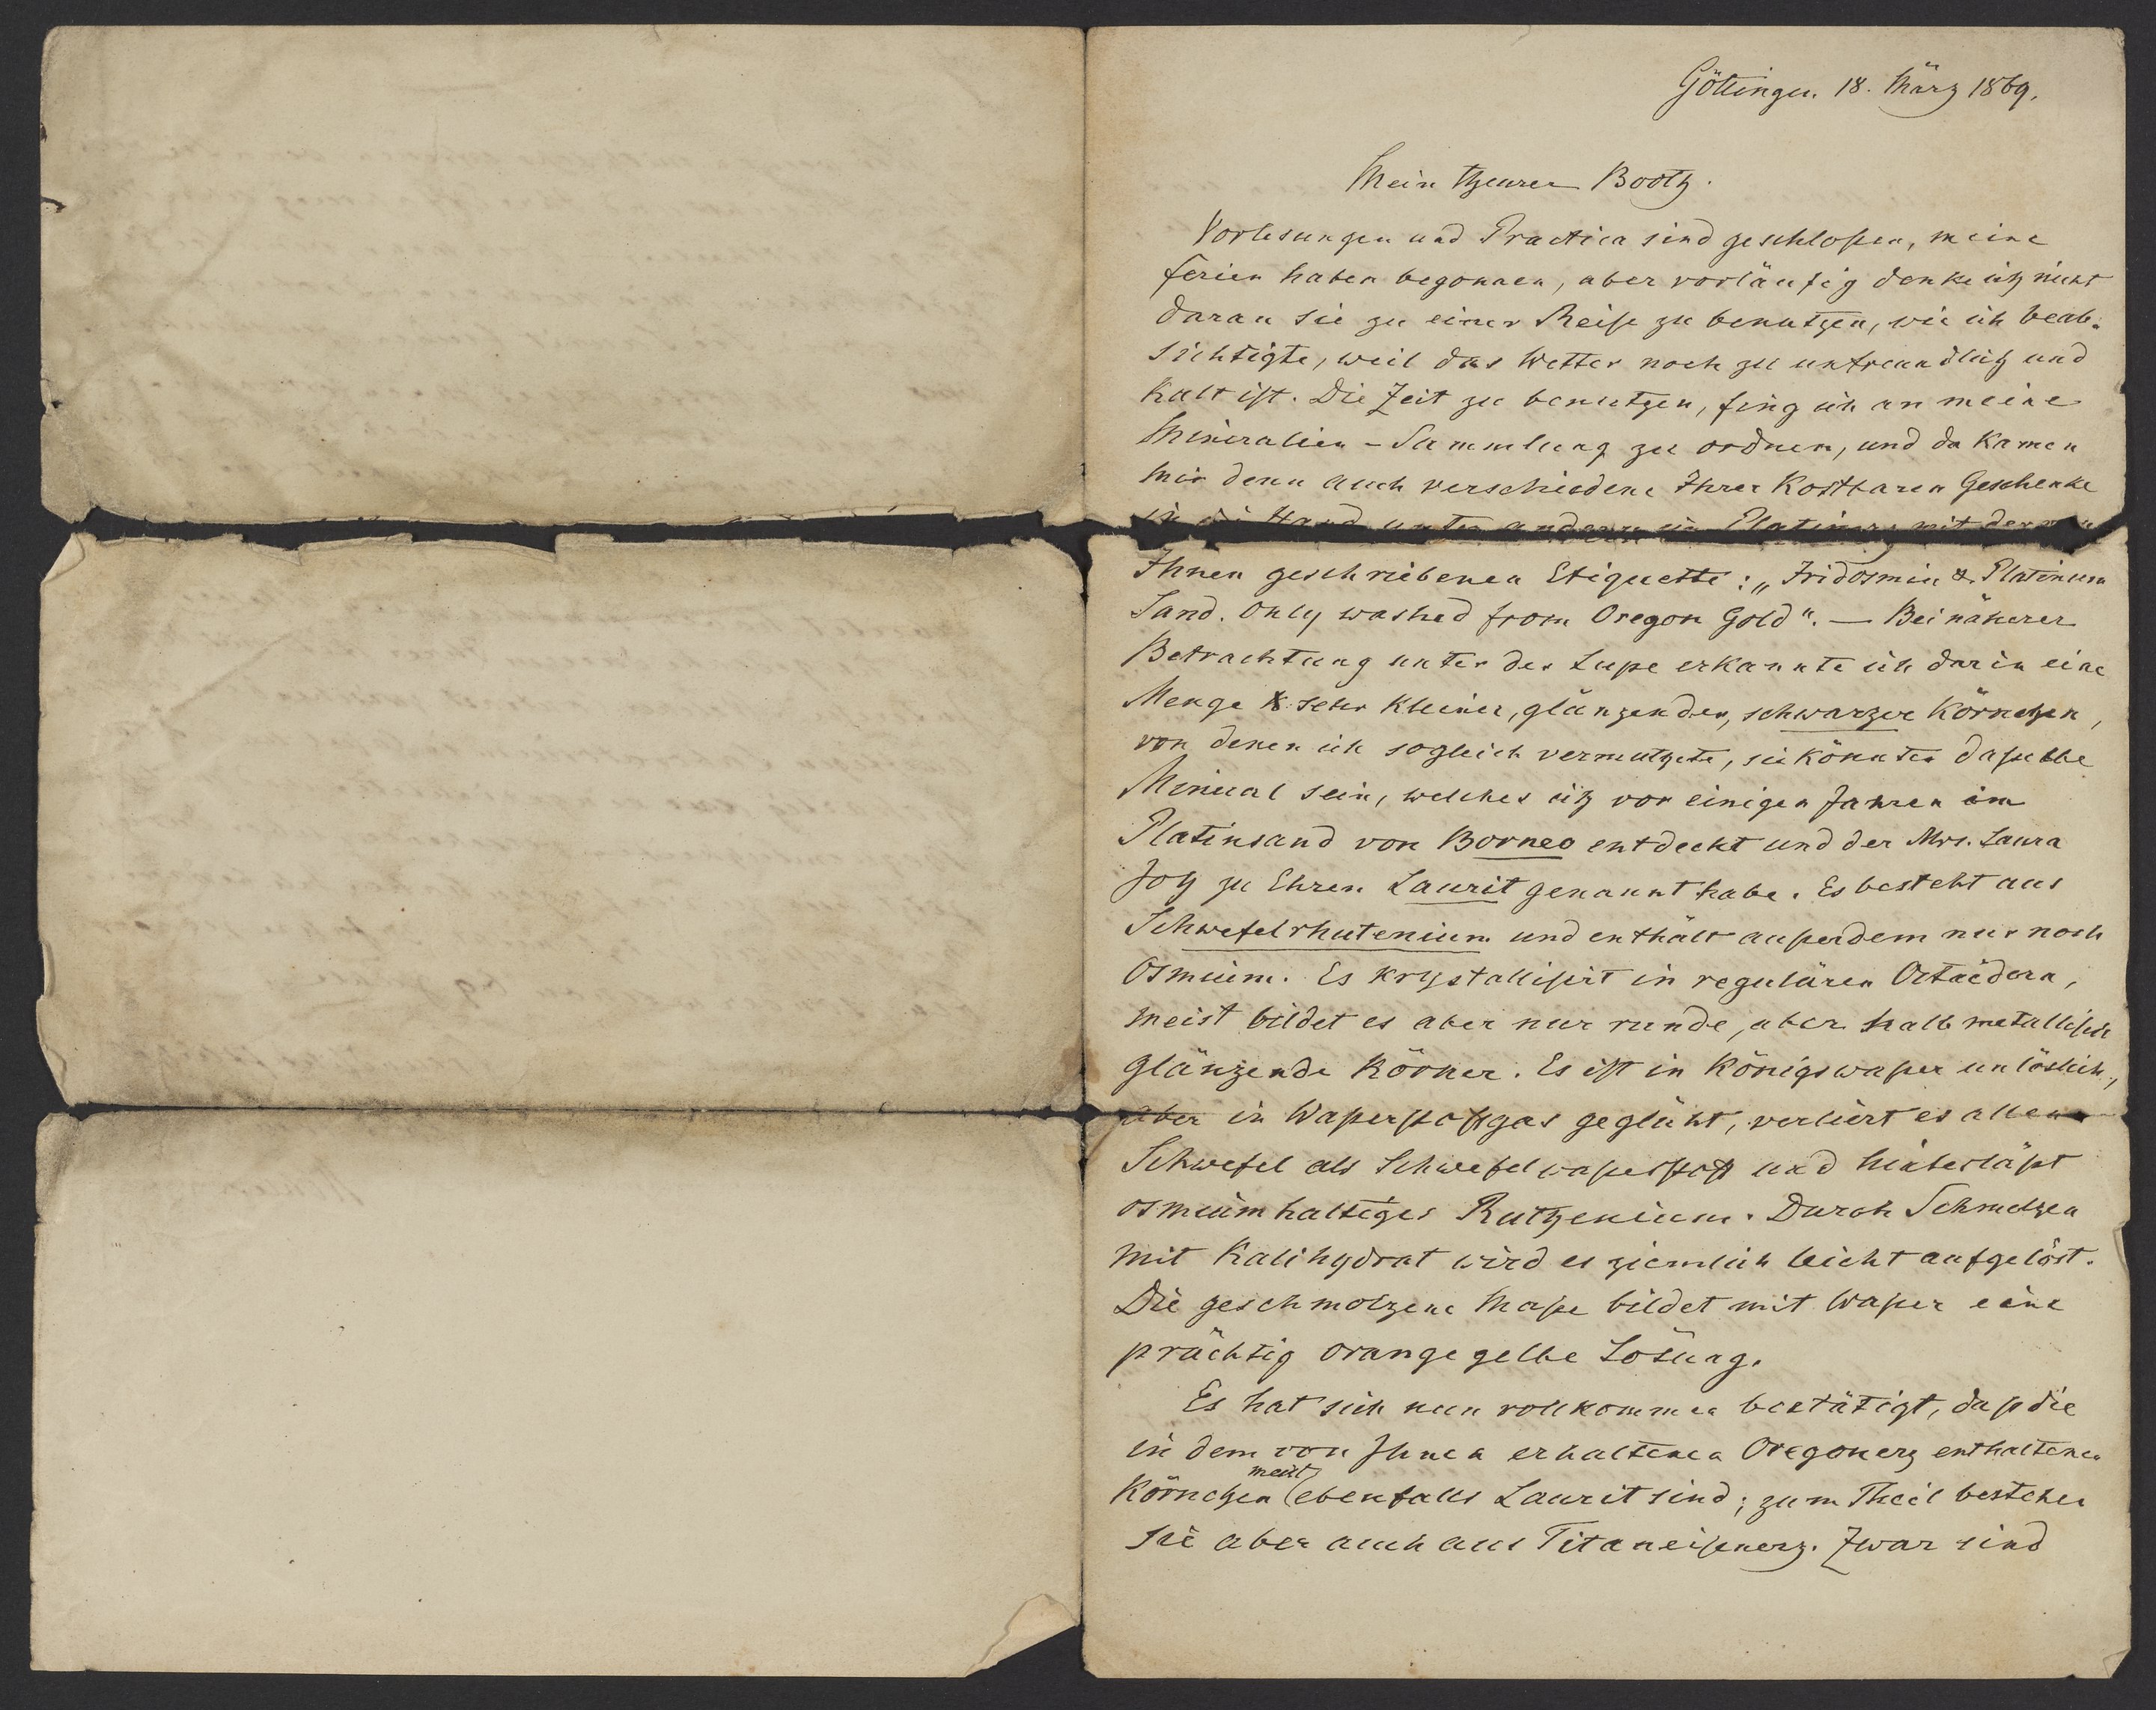 Göttingen. 18. März 1869.
Mein theurer Booth.
Vorlesungen und Practica sind geschloßen, meine
Ferien haben begonnen, aber vorläufig denke ich nicht
daran sie zu einer Reise zu benutzen, wie ich beab-
sichtigte, weil das Wetter noch zu unfreundlich und
kalt ist. Die Zeit zu benutzen, fing ich an meine
Mineralien-Sammlung zu ordnen, und da kamen
mir denn auch verschiedene Ihrer kostbaren Geschenke
in die Hand unter anderen ein Platinerz mit der von
Ihnen geschriebenen Etiquette: „Iridosmin & Platinum
Sand. Only washed from Oregon Gold". — Bei näherer
Betrachtung unter der Lupe erkannte ich darin eine
Menge sehr kleiner, glänzender, schwarzer Körnchen,
von denen ich sogleich vermuthete, sie könnten daßelbe
Mineral sein, welches ich vor einigen Jahren im
Platinsand von Borneo entdeckt und der Mrs. Laura
Joy zu Ehren Laurit genannt habe. Es besteht aus
Schwefelrhutenium und enthält außerdem nur noch
Osmium. Es krystallisirt in regulären Octaëdern,
meist bildet es aber nur runde, aber halb metallisch
glänzende Körner. Es ist in Königswaßer unlöslich,
aber in Waßerstoffgas geglüht, verliert es allen
Schwefel als Schwefelwaßerstoff und hinterläßt
osmiumhaltiges Ruthenium. Durch Schmelzen
mit Kalihydrat wird es ziemlich leicht aufgelöst.
Die geschmolzene Maße bildet mit Waßer eine
prächtig orangegelbe Lösung.
Es hat sich nun vollkommen bestätigt, daß die
in dem von Ihnen erhaltenen Oregonerz enthaltenen
Körnchen meist ebenfalls Laurit sind; zum Theil bestehen
sie aber auch aus Titaneisenerz. Zwar sind